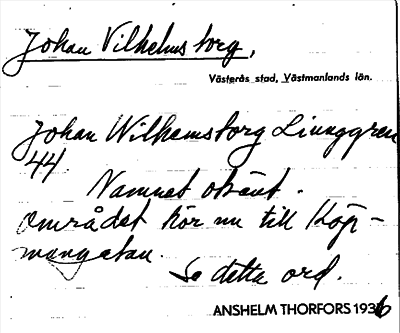 Johan Vilhelms torg,
Västerås stad, Västmanlands län.
Johan Wilhemstorg Linnggren
44.
Namnet okänt.
Området hör nu till Köp-
mangatan.
Se detta ord.
ANSHELM THORFORS 1936